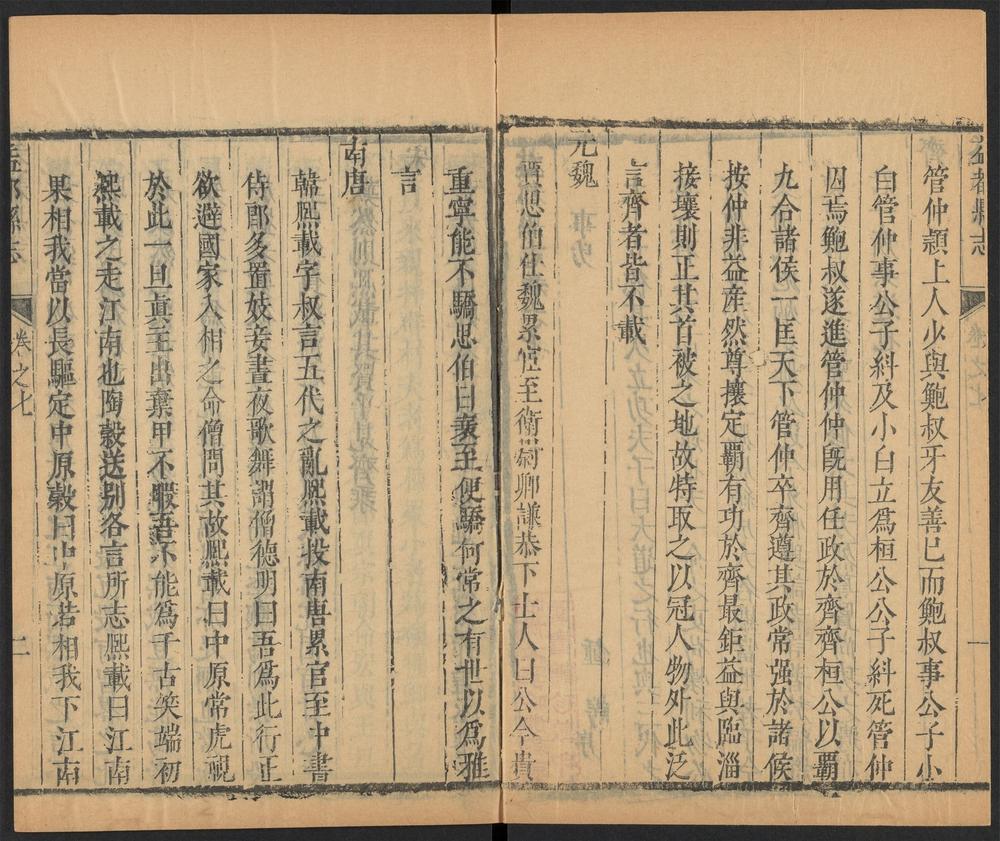 益都縣志
卷之七
一
管仲潁上人少與鮑叔牙友善已而鮑叔事公子小
白管仲事公子糾及小白立爲桓公公子糾死管仲
囚焉鮑叔遂進管仲仲旣用任政於齊齊桓公以霸
九合諸侯一匡天下管仲卒齊遵其政常强於諸侯
按仲非益產然尊攘定霸有功於齊最鉅益與臨淄
接壤則正其首被之地故特取之以冠人物外此泛
言齊者皆不載
元魏
賈思伯仕魏累官至衛尉卿謙恭下士人曰公今貴
重寧能不驕思伯曰衰至便驕何常之有世以爲雅
言
南唐
韓熙載字叔言五代之亂熙載投南唐累官至中書
侍郎多置妓妾晝夜歌舞謂僧德明曰吾爲此行正
欲避國家入相之命僧問其故熙載曰中原常虎視
於此一旦眞主出棄甲不暇吾不能爲千古笑端初
熙載之走江南也陶穀送別各言所志熙載曰江南
果相我當以長驅定中原穀曰中原若相我下江南
益都縣志
卷之七
二